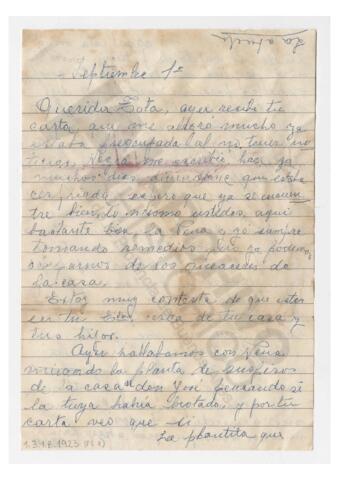 Septiembre 1º
Querida Tota, ayer recibi tu
carta, que me alegró mucho ya
estaba preocupada al no tener no
ticias, me escribió hace ya
muchos días que estaba
espero que ya se encuen
tre bien, lo mismo ustedes, aqui
bastante bien la Nena y yo siempre
tomando remedios pero ya podemos
de los quehaceres de
la casa.
Estoy muy contenta de que estes
cerca de tu casa y
tus hijos.
Ayer hablabamos con Nena
mirando la planta de suspiros
de la casa de don José pensando si
la tuya había brotado, y por tu
carta veo que si.
La plantita que